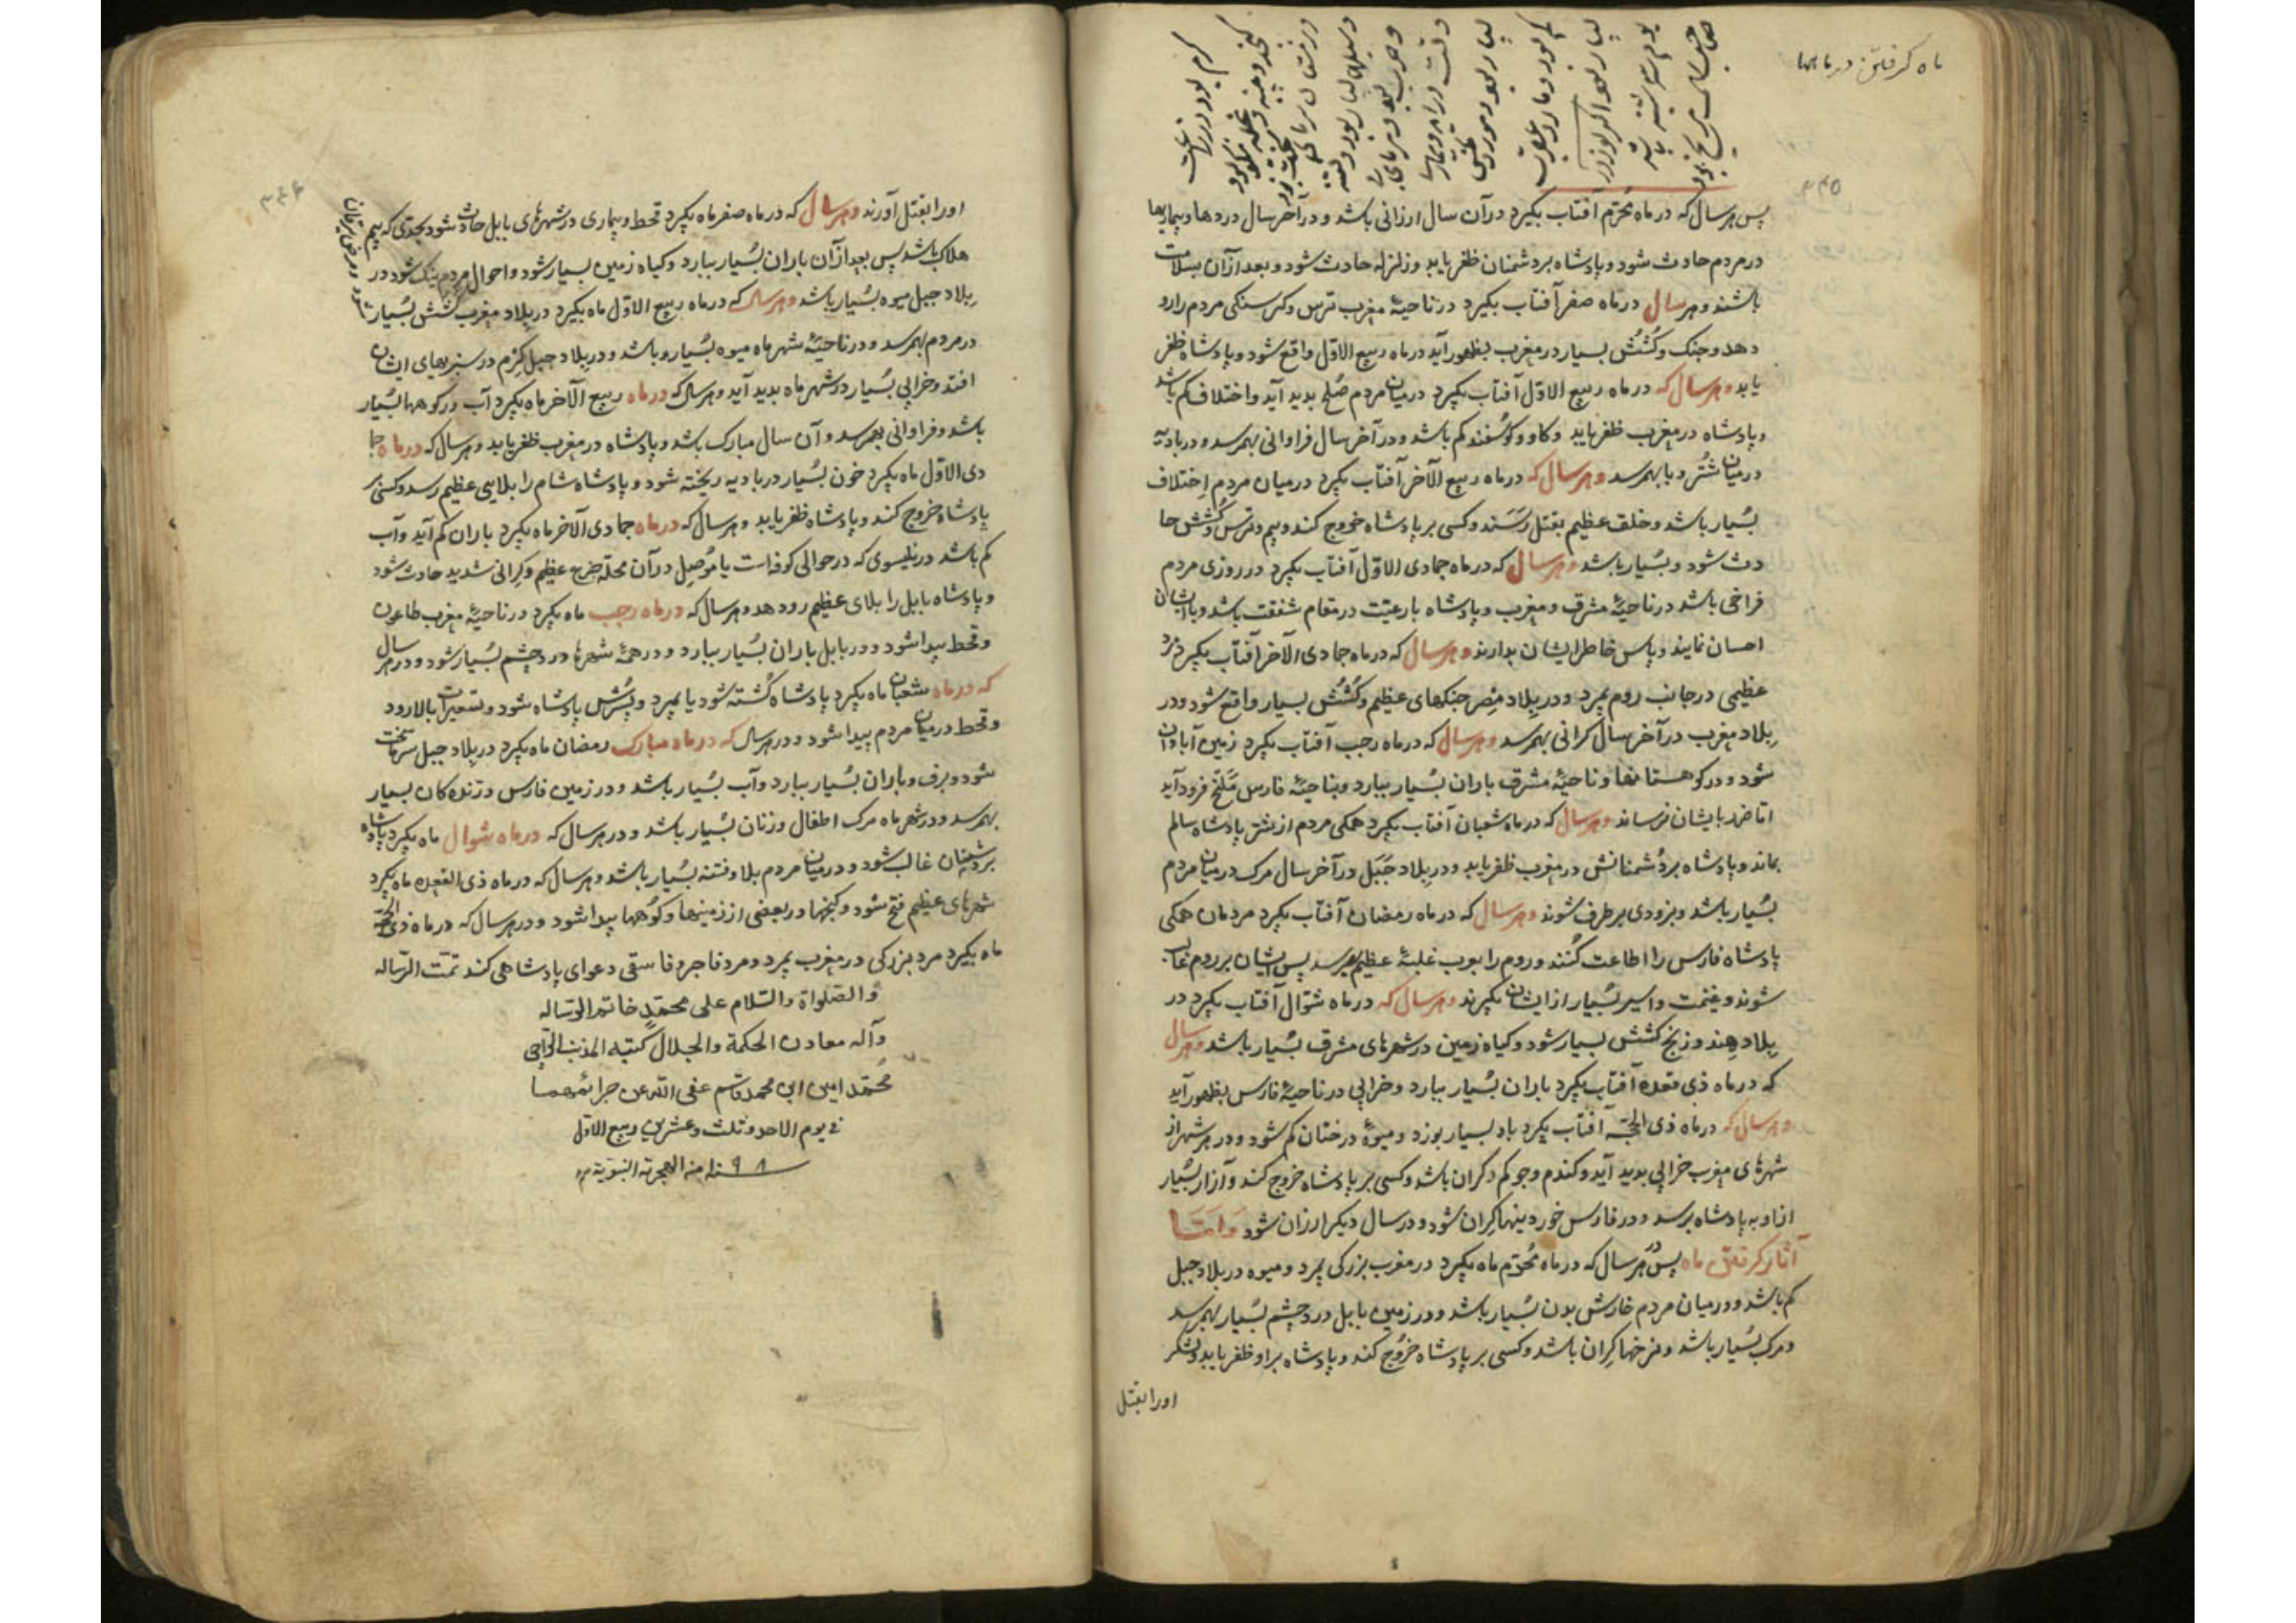 ماه گرفتن در ماهها
۳۴۵
پس هر سال که در ماه محرّم آفتاب بگیرد در آن سال ارزانی باشد و در آخر سال دردها و بیماریها
در مردم حادث شود و پادشاه بر دشمنان ظفر یابد و زلزله حادث شود و بعد از آن بسلامت
باشند و هر سال در ماه صفر آفتاب بگیرد در ناحیهٔ مغرب ترس و کرسنکی مردم را رو
دهد و جنک و کُشُش بسیار در مغرب بظهور آید در ماه ربیع الاوّل واقع شود و پادشاه ظفر
یابد و هر سال که در ماه ربیع الاوّل آفتاب بگیرد در میان مردم صُلح بدید آید و اختلاف کم باشد
و پادشاه در مغرب ظفر یابد و کاو و کوسفند کم باشد و در آخر سال فراوانی بهمرسد و در بادیه
در میان شتُر وبا بهمرسد و هر سال که در ماه ربیع الآخر آفتاب بگیرد در میان مردم اِختلاف
بسُیار باشد و خلق عظیم بقتل رَسَند و کسی بر پادشاه خروج کند و بیم و ترس و کُشش حا
دث شود و بسُیار باشد و هر سال که در ماه جمادی الاوّل آفتاب بگیرد در روزی مردم
فراخی باشد در ناحیهٔ مشرق و مغرب و پادشاه با رعیّت در مقام شفقت باشد و با ایشان
احسان نمایند و پاس خاطر ایشان بدارند و هر سال که در ماه جمادی الآخر آفتاب بگیرد مرد
عظیمی در جانب روم بمیرد و در بِلاد مِصر جنکهای عظیم و کُشُش بسیار واقع شود و در
بِلاد مغرب در آخر سال کرانی بهمرسد و هر سال که در ماه رجب آفتاب بگیرد زمین آبادان
شود و در کوهستانها و ناحیهٔ مشرق باران بسُیار ببارد و بناحیهٔ فارس مَلَخ فرود آید
امّا ضرر بایشان نرساند و هر سال که در ماه شعبان آفتاب بگیرد همکی مردم از شرّ پادشاه سالم
بماند و پادشاه بر دُشمنانش در مغرب ظفر یابد و در بِلاد جَبَل در آخر سال مرک در میان مردم
بسُیار باشد و بزودی برطرف شوند و هر سال که در ماه رمضان آفتاب بگیرد مردمان همکی
پادشاه فارس را اطاعت کُنند و روم را بعرب غلبهٔ عظیم بهمرسد پس ایشان بر روم غالب
شوند و غنیمت و اسیر بسُیار از ایشان بگیرند و هر سال که در ماه شوّال آفتاب بگیرد در
بِلاد هِند و زنج کشش بسیار شود و کیاه زمین در شهرهای مشرق بسُیار باشد و هر سال
که در ماه ذی قعده آفتاب بگیرد باران بسُیار ببارد و خرابی در ناحیهٔ فارس بظهور آید
و هر سال که در ماه ذی الحجّه آفتاب بگیرد باد بسیار بوزد و میوهٔ درختان کم شود و در هر شهر از
شهرهای مغرب خرابی بدید آید و کندم و جو کم و کران باشد و کسی بر پادشاه خروج کند و آزار بسُیار
از او به پادشاه برسد و در فارس خوردینها کِران شود و در سال دیکر ارزان شود وَ اَمَّا
آثار کرفتن ماه پس در هر سال که در ماه مُحرّم ماه بگیرد در مغرب بزرکی بمیرد و میوه در بلاد جبل
کم باشد و در میان مردم خارش بدن بسُیار باشد و در زمین بابل درد چشم بسُیار بهمرسد
و مرک بسُیار باشد و نرخها کِران باشد و کسی بر پادشاه خرُوج کند و پادشاه بر او ظفر یابد و لشکر
او را بقتل
۳۴۶
او را بقتل آورند و هر سال که در ماه صفر ماه بگیرد قحط و بیماری در شهرهای بابل حادث شود بحدّی که بیم
هلاک باشد پس بعد از آن باران بسُیار ببارد و کیاه زمین بسیار شود و احوال مردم نیک شود در
بِلاد جبل میوه بسُیار باشد و هر سال که در ماه ربیع الاوّل ماه بگیرد در بِلاد مغرب کشش بسُیار
در مردم بهمرسد و در ناحیهٔ شهر ماه میوه بسُیار و باشد و در بِلاد جبل کِرم در سبزیهای ایشان
افتد و خرابی بسُیار در شهر ماه بدید آید و هر سال که در ماه ربیع الآخر ماه بگیرد آب در کوهها بسُیار
باشد و فراوانی بهمرسد و آن سال مبارک باشد و پادشاه در مغرب ظفر یابد و هر سال که در ماه جما
دی الاوّل ماه بگیرد خون بسُیار در بادیه ریخته شود و پادشاه شام را بلایی عظیم رسد و کسی بر
پادشاه خروج کند و پادشاه ظفر یابد و هر سال که در ماه جمادی الآخر ماه بگیرد باران کم آید و آب
کم باشد در نلیسوی که در حوالی کوفه است یا موُصِل در آن محله جزع عظیم و کِرانی شدید حادث شود
و پادشاه بابل را بلای عظیم رو دهد و هر سال که در ماه رجب ماه بگیرد در ناحیهٔ مغرب طاعون
و قحط پیدا شود و در بابل باران بسُیار ببارد و در همهٔ شهرها درد چشم بسُیار شود و در هر سال
که در ماه شعبان ماه بگیرد پادشاه کُشته شود یا بمیرد و پسُرش پادشاه شود و تسعیرات بالا رود
و قحط در میان مردم پیدا شود و در هر سال که در ماه مبارک رمضان ماه بگیرد در بِلاد جبل سرما سخت
شود و برف و باران بسُیار ببارد و آب بسُیار باشد و در زمین فارس درنده کان بسیار
بهمرسد و در شهر ماه مرک اطفال و زنان بسُیار باشد و در هر سال که در ماه شوال ماه بگیرد پادشاه
بر دشمنان غالب شود و در میان مردم بلا و فتنه بسُیار باشد و هر سال که در ماه ذی القعده ماه بگیرد
شهرهای عظیم فتح شود و کنجها در بعضی از زمینها و کوُهها پیدا شود و در هر سال که در ماه ذی الحجّه
ماه بگیرد مرد بزرکی در مغرب بمیرد و مرد فاجر و فاسقی دعوای پادشاهی کند تمّت الرّساله
والصّلواة والسّلام علی محمّدٍ خاتم الرّساله
وآله معادن الحکمة والجلال کتبه المذنب الراجی
مُحمّد امین ابن محمد قاسم عفی الله عن جرائمهما
فی یوم الاحد و ثلث و عشرین ربیع الاوّل
سنه ۱۰۹۸ من الهجرة النبویّة